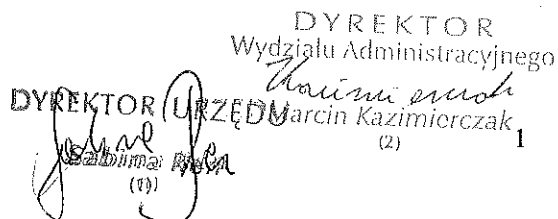 DYREKTOR
Wydziału Administracyjnego
Marcin Kazimierczak
(2)
DYREKTOR URZĘDU
Sabina
(1)
1